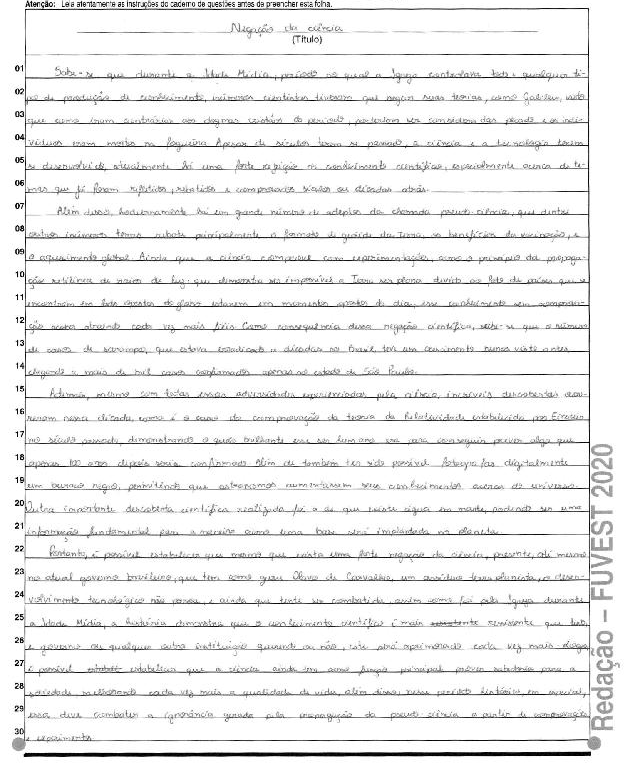 Atenção: Leia atentamente as instruções do caderno de questões antes de preencher esta folha.
Negação da ciência
(Título)
01 Sabe-se que durante a Idade Média, período no qual a Igreja controlava todo e qualquer ti-
02 po de produção de conhecimento, inúmeros cientistas tiveram que negar suas teorias, como Galileu, visto
03 que como iriam contrários aos dogmas cristãos do período, poderiam ser considerados pecado e os indi-
04 víduos eram mortos na fogueira Apesar de séculos terem se passado, a ciência e a tecnologia terem
05 se desenvolvido, atualmente há uma forte rejeição ao conhecimento científico, especialmente acerca de te-
06 mas que já foram refletidos, rebatidos e comprovados séculos ou décadas atrás.
07 Além disso, hodiernamente há um grande número de adeptos da chamada pseudo-ciência, que dentre
08 outros inúmeros temas rebate principalmente o formato de geóide da Terra, os benefícios da vacinação, e
09 o aquecimento global. Ainda que a ciência comprove com experimentações, como o princípio da propaga-
10 ção retilínea de raios de luz que demonstra ser impossível a Terra ser plana devido ao fato de países que se
11 encontram em lados opostos do globo estarem em momentos opostos do dia, esse conhecimento sem comprova-
12 ção acaba atraindo cada vez mais fiéis Como consequência dessa negação científica, sabe-se que o número
13 de casos de sarampo, que estava erradicado a décadas no Brasil, teve um crescimento nunca visto antes,
14 chegando a mais de mil casos confirmados apenas no estado de São Paulo.
15 Ademais, mesmo com todas essas adversidades experienciadas pela ciência, incríveis descobertas ocor-
16 reram nessa década, como é o caso da comprovação da teoria da Relatividade estabelecida por Einstein
17 no século passado, demonstrando o quão brilhante esse ser humano era para conseguir prever algo que
18 apenas 100 anos depois seria confirmado Além de também ter sido possível fotografar digitalmente
19 um buraco negro, permitindo que astrônomos aumentassem seus conhecimentos acerca do universo.
20 Outra importante descoberta científica realizada foi a de que existe água em marte, podendo ser uma
21 informação fundamental para a maneira como uma base será implantada no planeta.
22 Portanto, é possível estabelecer que mesmo que exista uma forte negação da ciência, presente, até mesmo
23 no atual governo brasileiro, que tem como guru Olavo de Carvalho, um terra planista, o desen-
24 volvimento tecnológico não parou, e ainda que tente ser combatida, assim como foi pela Igreja durante
25 a Idade Média, a história demonstra que o conhecimento científico é mais resistente que tudo,
26 o governo ou qualquer outra instituição querendo ou não, este será aprimorado cada vez mais
27 é possível estabelecer que a ciência ainda tem como função principal para a
28 sociedade melhorando cada vez mais a qualidade de vida, além disso, nesse período histórico, em especial,
29 essa deve combater a ignorância gerada pela propagação da pseudo ciência a partir de comprovação
30 e experimento.
Redação – FUVEST 2020